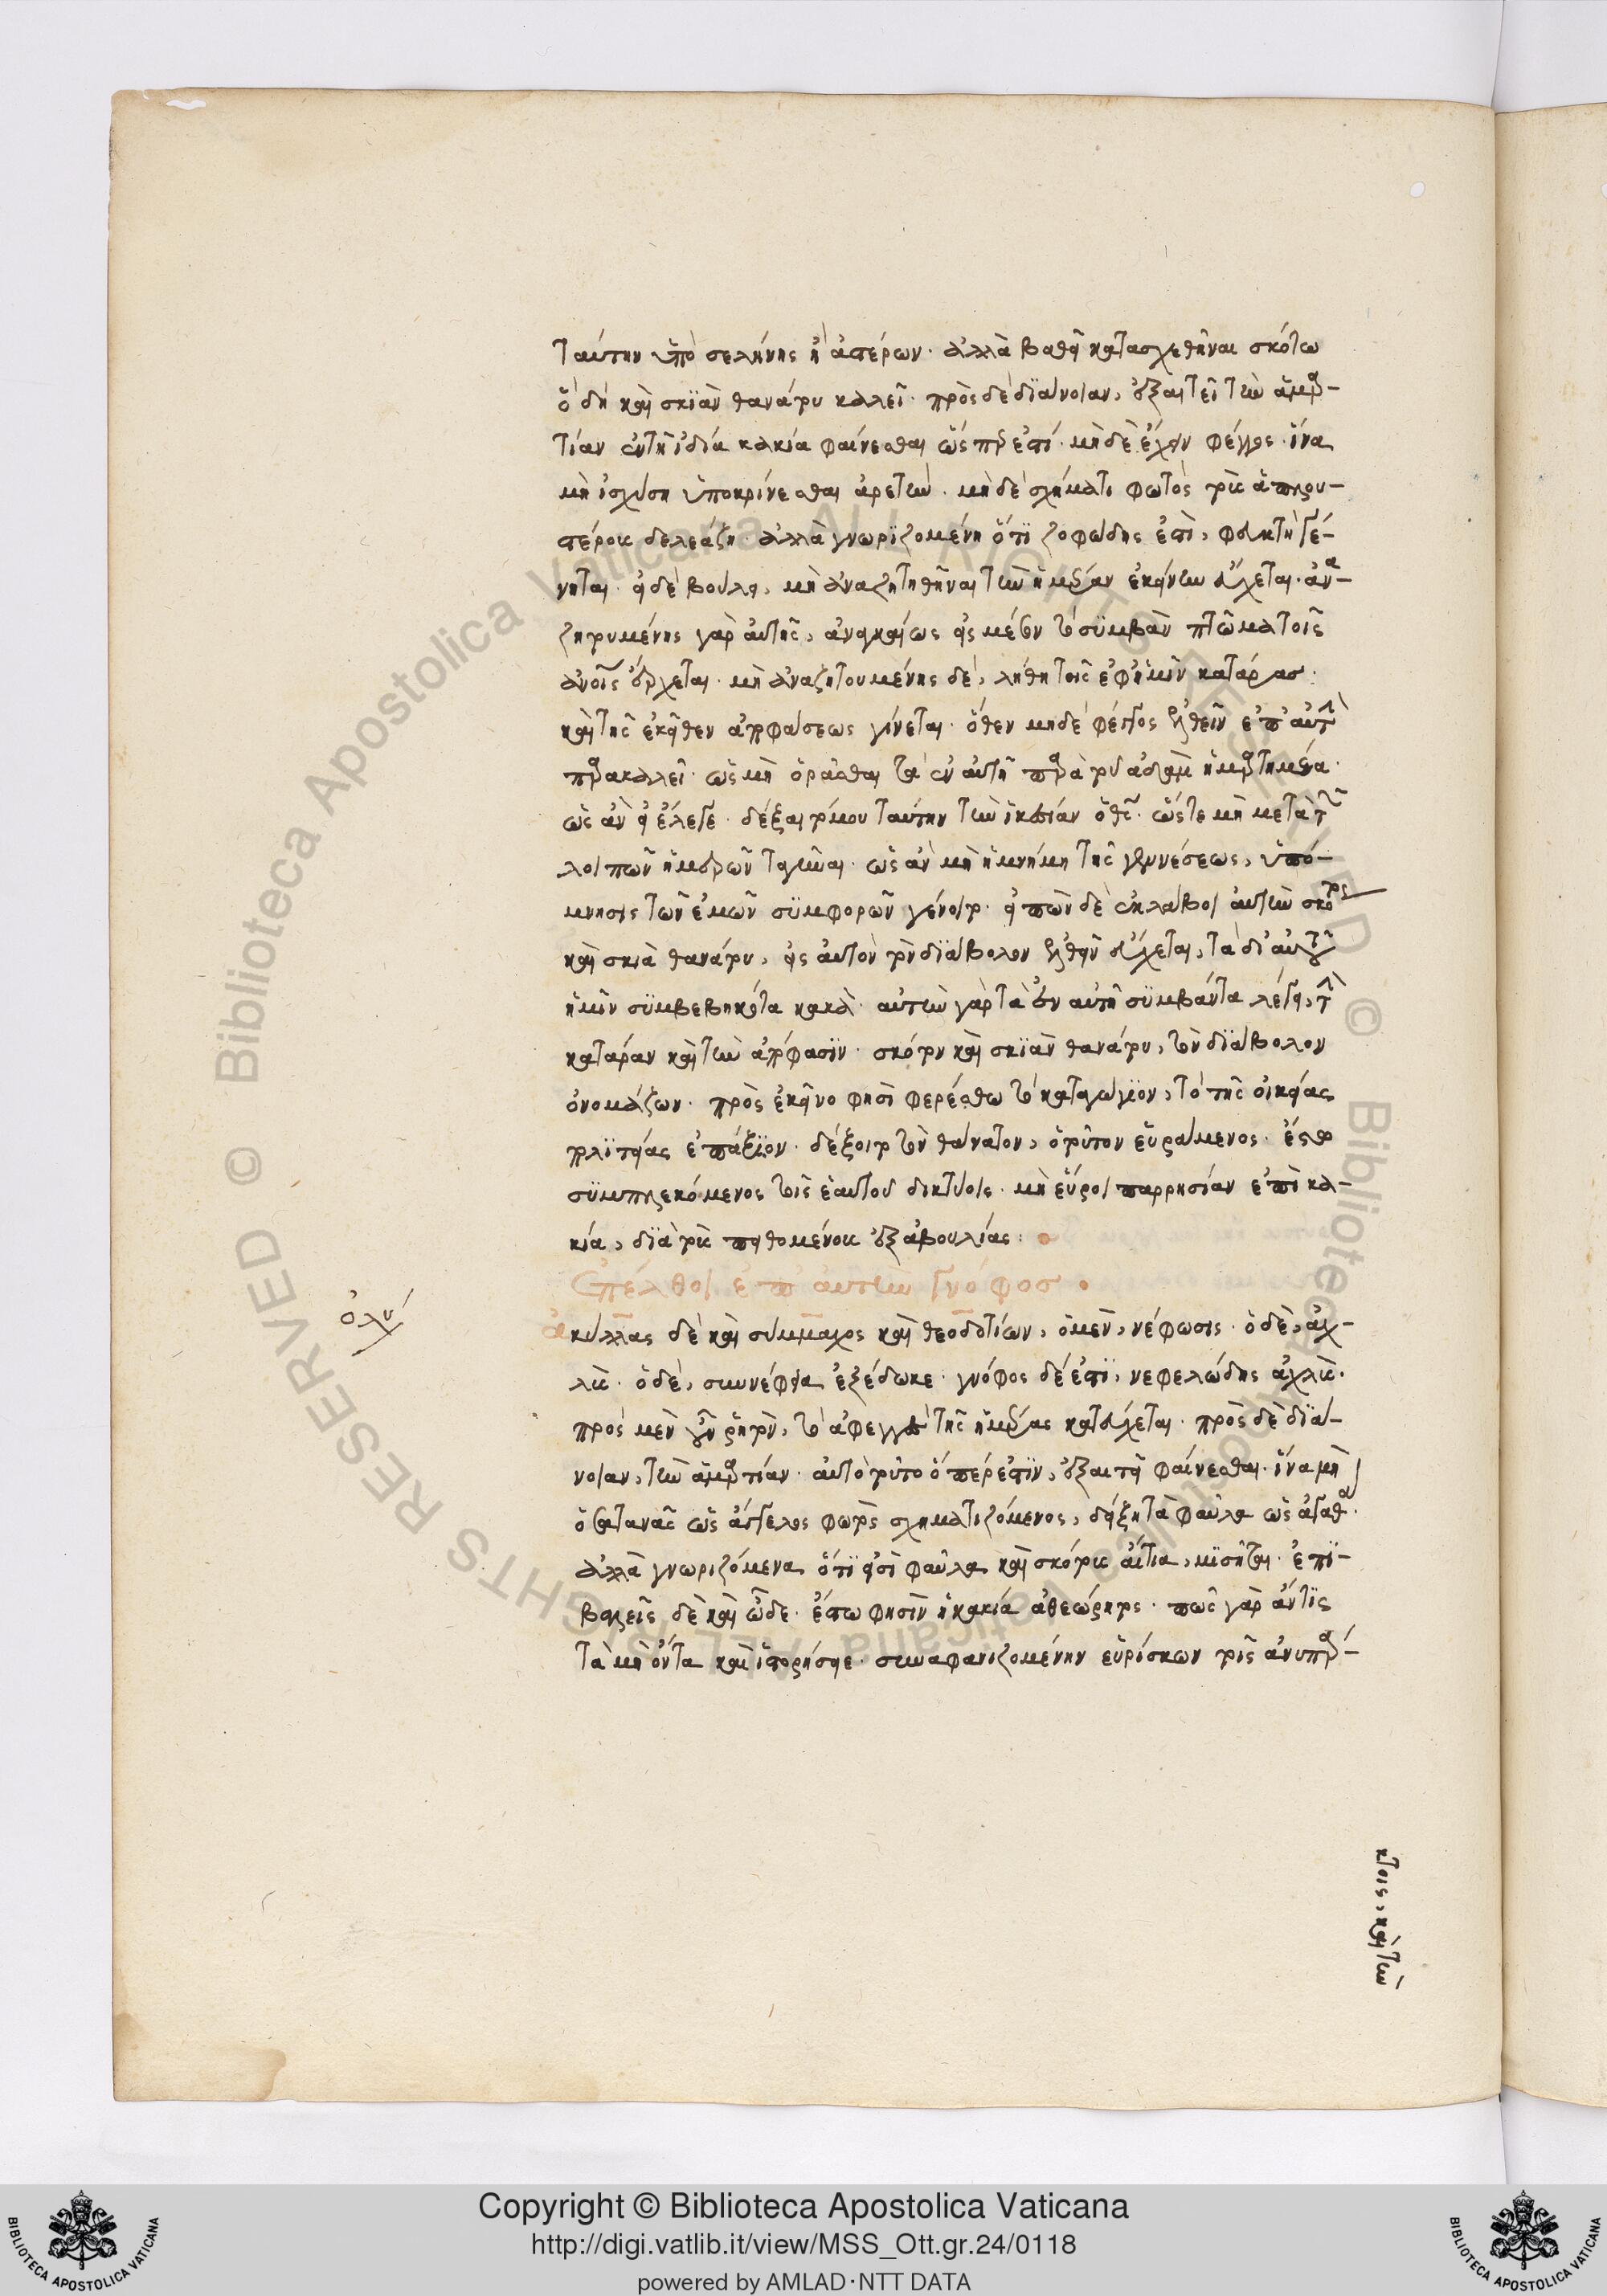 ταύτην ὑπὸ σελήνης ἢ ἀστέρων· ἀλλὰ βαθεῖ κατασχεθῆναι σκότω
ὃ δὴ καὶ σκϊὰν θανάτου καλεῖ· πρὸς δὲ διάνοιαν, ἐξαιτεῖ τὴν ἁμαρ-
τίαν ἐν τῆ ἰδία κακία φαίνεσθαι ὥσπερ ἐστί· μὴ δὲ ἔχειν φέγγος· ἵνα
μὴ ἰσχύση ὑποκρίνεσθαι ἀρετὴν· μὴ δὲ σχήματι φωτὸς τοὺς ἁπλου-
στέρους δελεάζη· ἀλλὰ γνωρϊζομένη ὅτϊ ζοφώδης ἐστὶ, φευκτὴ γέ-
νηται· εἰ δὲ βούλει, μὴ ἀναζητηθῆναι τὴν ἡμέραν ἐκείνην εὔχεται· ἀνα-
ζητουμένης γὰρ αὐτῆς, ἀναγκαίως εἰς μέσον τὸ σϋμβὰν πτῶμα τοῖς
ἀνοις ἔρχεται· μὴ ἀναζητουμένης δὲ, λήθη τῆς ἐφ' ἡμῖν κατάρας·
καὶ τῆς ἐκεῖθεν ἀποφάσεως γίνεται· ὅθεν μηδὲ φέγγος ἐλθεῖν ἐπ' αὐτὴν
παρακαλεῖ· ὡς μὴ ὁρᾶσθαι τὰ ἐν αὐτῆ παρὰ τοῦ ἀδὰμ ἡμαρτημένα·
ὡς ἂν εἰ ἔλεγε· δέξαι τό μου ταύτην τὴν ἱκεσίαν ὁ θς· ὥστε μὴ μετὰ τῶν
λοιπῶν ἡμερῶν ταγῆναι· ὡς ἂν μὴ ἡ μνήμη τῆς γεννέσεως, ὑπό-
μνησις τῶν ἐμῶν σϋμφορῶν γένοιτο· εἰπὼν δὲ ἐκλάβοι αὐτὴν σκότος
καὶ σκιὰ θανάτου, εἰς αὐτὸν τὸν διάβολον ἐλθεῖν εὔχεται, τὰ δι' αὐτοῦ
ἡμῖν σϋμβεβηκότα κακά· αὐτὴν γὰρ τὰ ἐν αὐτῆ σϋμβάντα λέγει, τὴν
κατάραν καὶ τὴν ἀπόφασϊν· σκότον καὶ σκϊὰν θανάτου, τὸν διάβολον
ὀνομάζων· πρὸς ἐκεῖνο φησὶ φερέσθω τὸ καταγώγϊον, τὸ τῆς οἰκείας
πολϊτείας ἐπάξϊον· δέξοιτο τὸν θάνατον, ὁ τοῦτον εὑράμενος· ἔστω
σϋμπλεκόμενος τοῖς ἑαυτοῦ δικτύοις· μὴ εὕροι παρρησίαν ἐπὶ κα-
κία, διὰ τοὺς πειθομένους ἐξ ἀβουλίας:
Ἐπέλθοι ἐπ' αὐτὴν γνόφος·
ὀλυ
ἀκύλλας δὲ καὶ σύμμαχος καὶ θεοδοτίων, ὁ μὲν, νέφωσις· ὁ δὲ, ἀχ-
λὺς· ὁ δὲ, συννέφεια ἐξέδωκε· γνόφος δέ ἐστϊ, νεφελώδης ἀχλὺς·
πρὸς μὲν οὖν ῥητὸν, τὸ ἀφεγγὲς τῆς ἡμέρας κατεύχεται· πρὸς δὲ διά-
νοιαν, τὴν ἁμαρτίαν· αὐτὸ τοῦτο ὅπερ ἐστϊν, ἐξαιτεῖ φαίνεσθαι· ἵνα μὴ
ὁ σατανᾶς ὡς ἄγγελος φωτὸς σχηματιζόμενος, δείξη τὰ φαῦλα ὡς ἀγαθά·
ἀλλὰ γνωριζόμενα ὅτϊ εἰσὶ φαῦλα καὶ σκότους αἴτια, μισῆται· ἐπϊ-
βαλεῖς δὲ καὶ ὧδε· ἔστω φησὶν ἡ κακία ἀθεώρητος· πῶς γὰρ ἄν τϊς
τὰ μὴ ὄντα καὶ ἱστορήσειε· συναφανιζομένην εὑρίσκων τοῖς ἀνυπάρ-
κτοις, καὶ τὴν
Copyright © Biblioteca Apostolica Vaticana
http://digi.vatlib.it/view/MSS_Ott.gr.24/0118
powered by AMLAD·NTT DATA